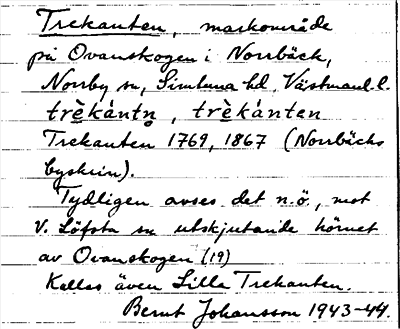 Trekanten, markområde
på Ovanskogen i Norrbäck,
Norrby sn, Simtuna hd, Västmanl. l.
trè̱kántn̥, trè̱kánten
Trekanten 1769, 1867 (Norrbäcks
byskrin).
Tydligen avses det n.ö., mot
V. Löfsta sn utskjutande hörnet
av Ovanskogen (19)
Kallas även Lilla Trekanten.
Bernt Johansson 1943-44.